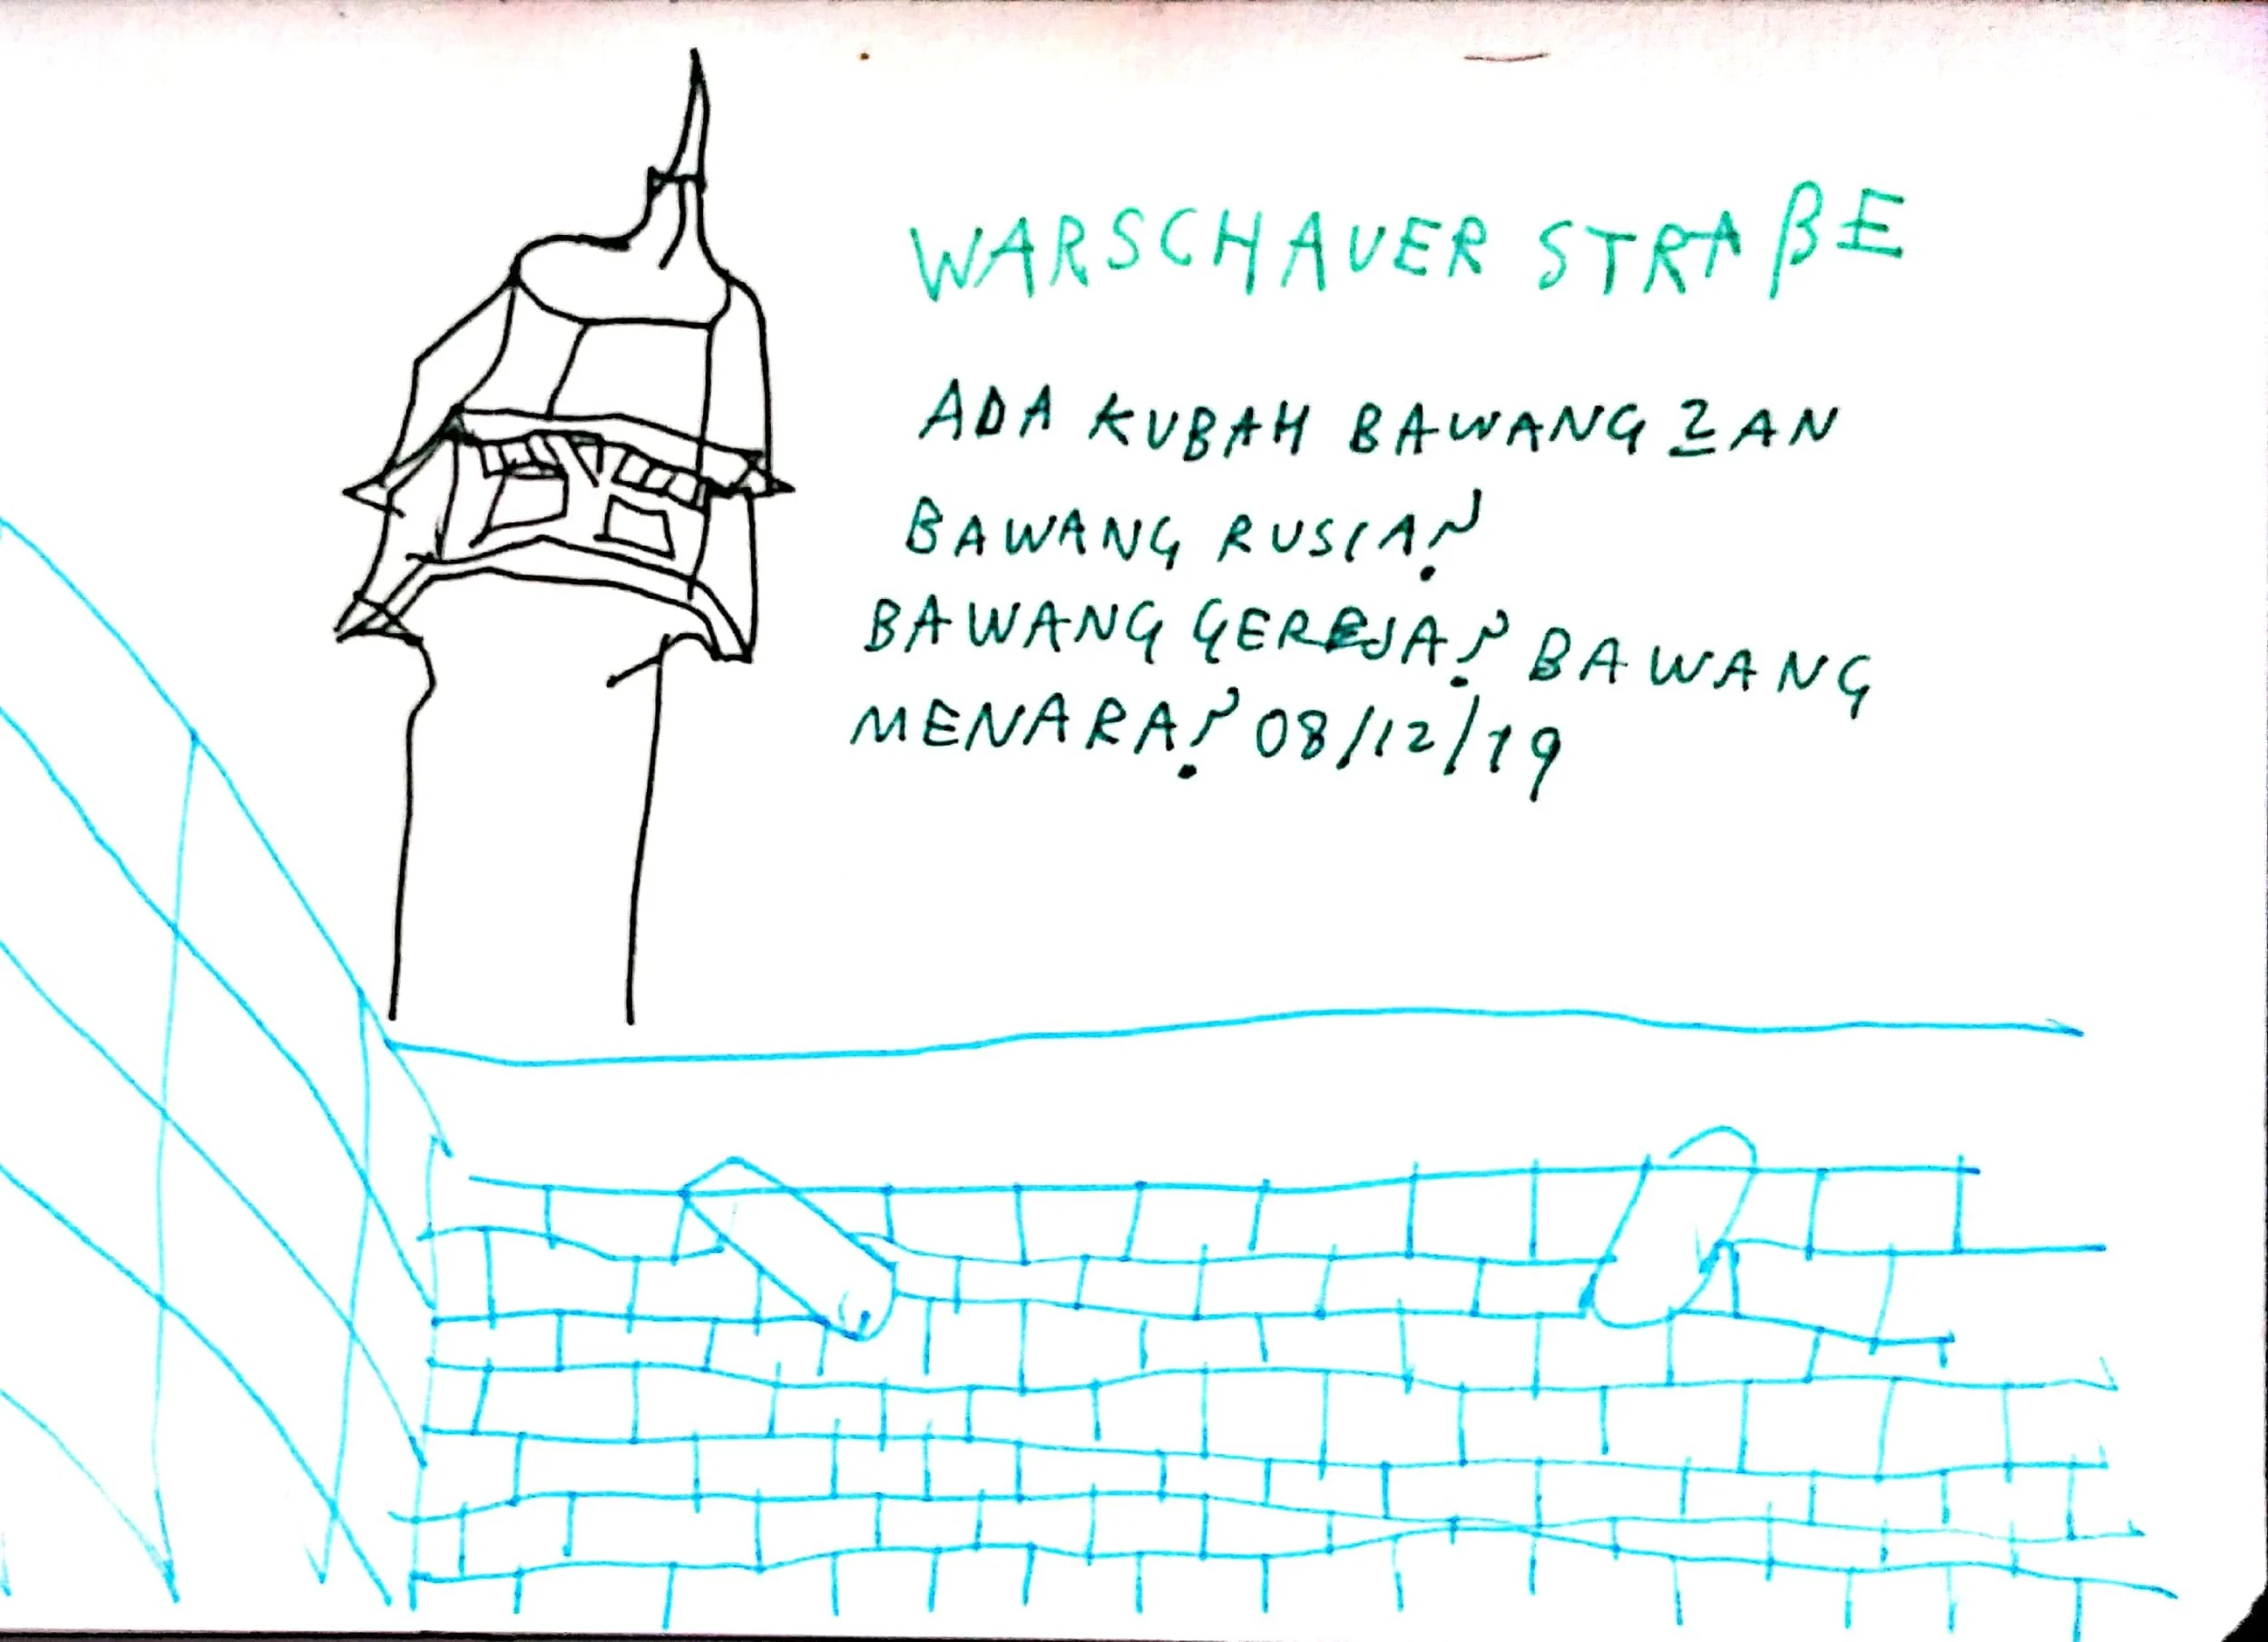 WARSCHAUER STRAßE
ADA KUBAH BAWANG 2AN
BAWANG RUSIA?
BAWANG GEREJA? BAWANG
MENARA? 08/12/19